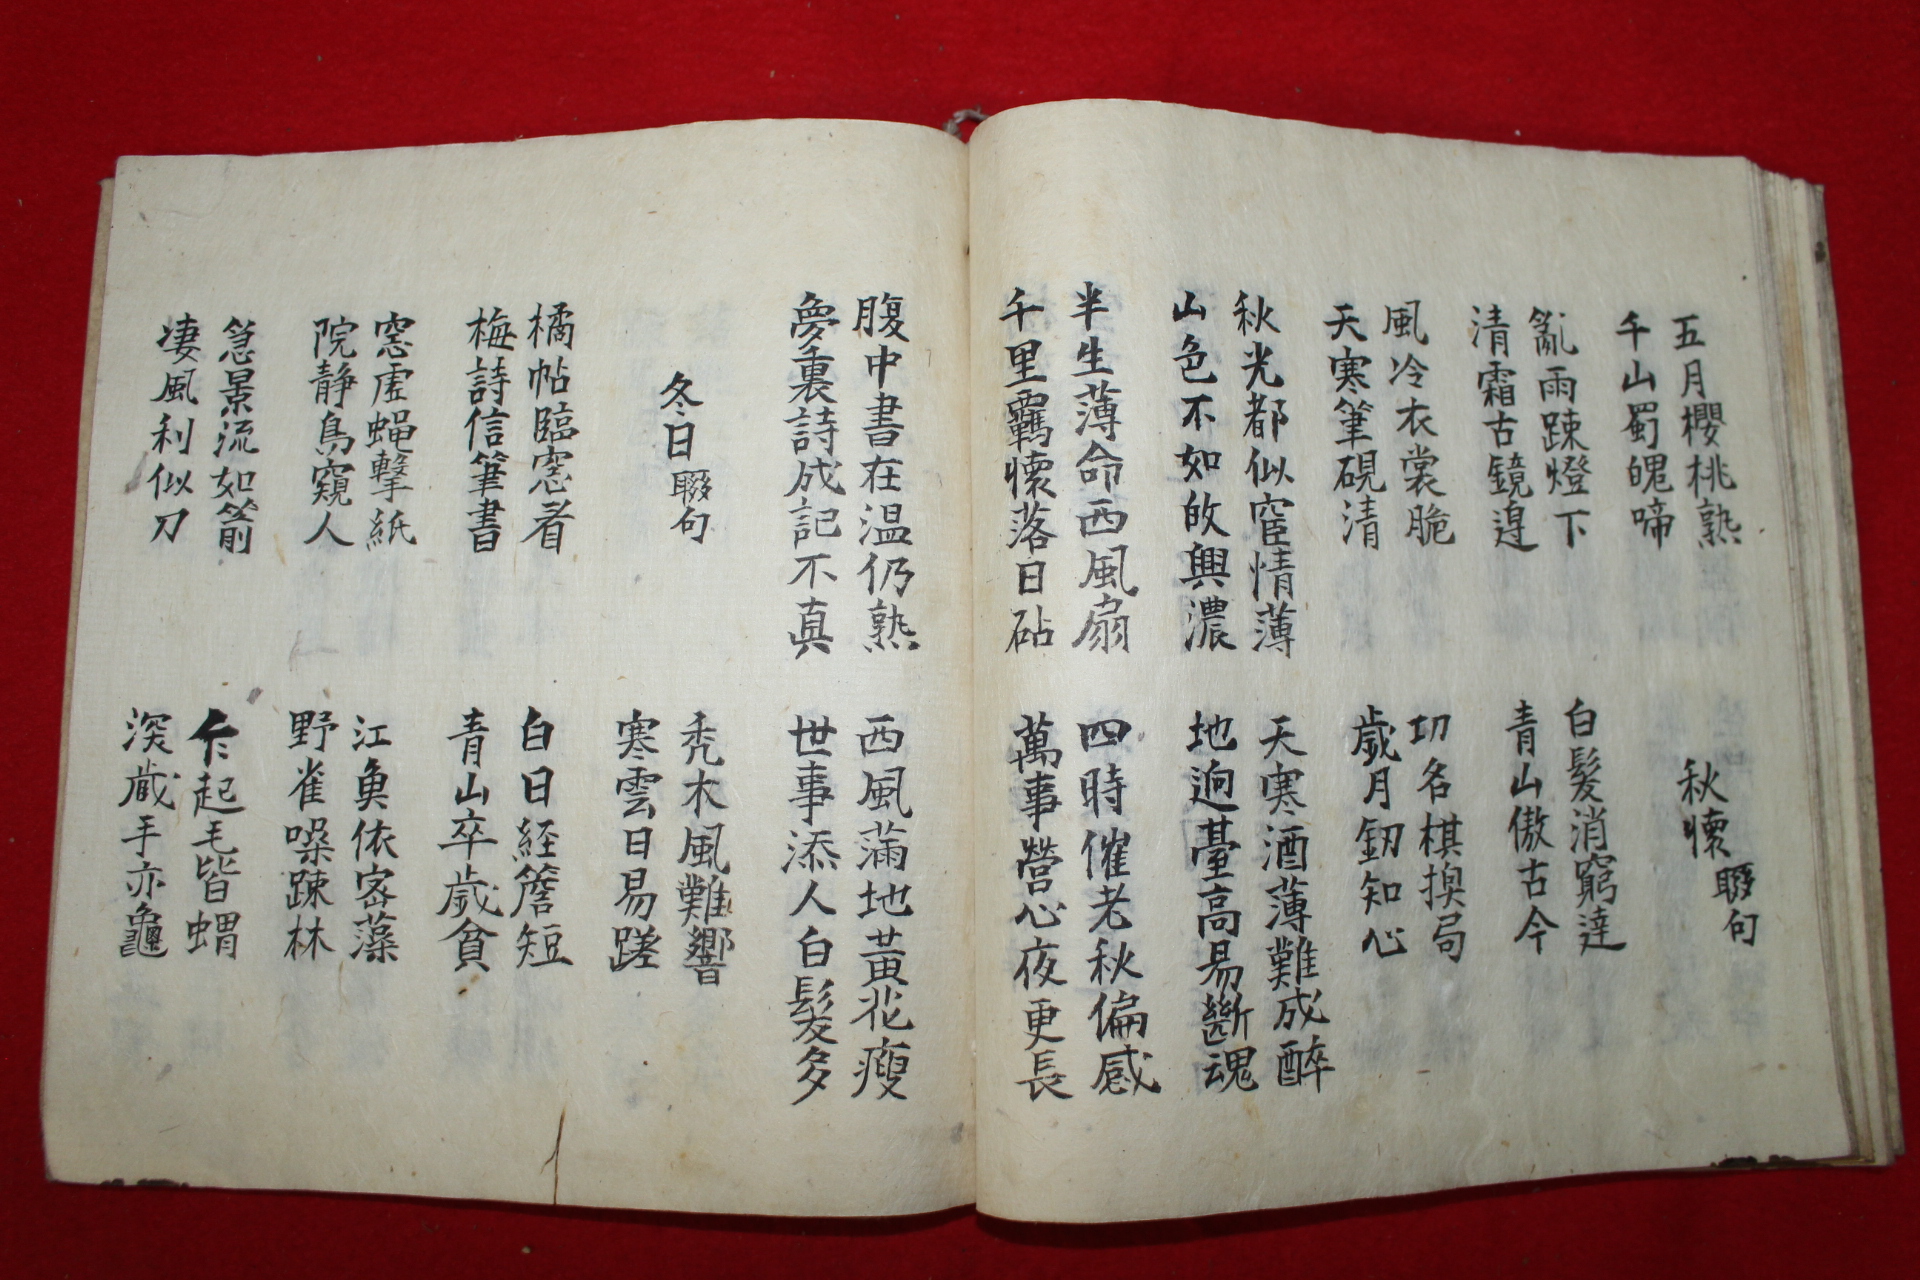 五月櫻桃熟
千山蜀魄啼
秋懷 聯句
亂雨踈燈下
清霜古鏡邊
白髮消窮達
青山傲古今
風冷衣裳脆
天寒筆硯清
功名棋換局
歲月釰知心
秋光都似宦情薄
山色不如故興濃
天寒酒薄難成醉
地逈臺高易斷魂
半生薄命西風扇
千里羈懷落日砧
四時催老秋偏感
萬事營心夜更長
腹中書在溫仍熟
夢裏詩成記不真
西風滿地黃花瘦
世事添人白髮多
冬日 聯句
禿木風難響
寒雲日易蹉
橘帖臨窓看
梅詩信筆書
白日経簷短
青山卒歲貧
窓虛蝇擊紙
院静鳥窺人
江魚依密藻
野雀噪踈林
急景流如箭
凄風利似刀
乍起毛皆蝟
深藏手亦龜